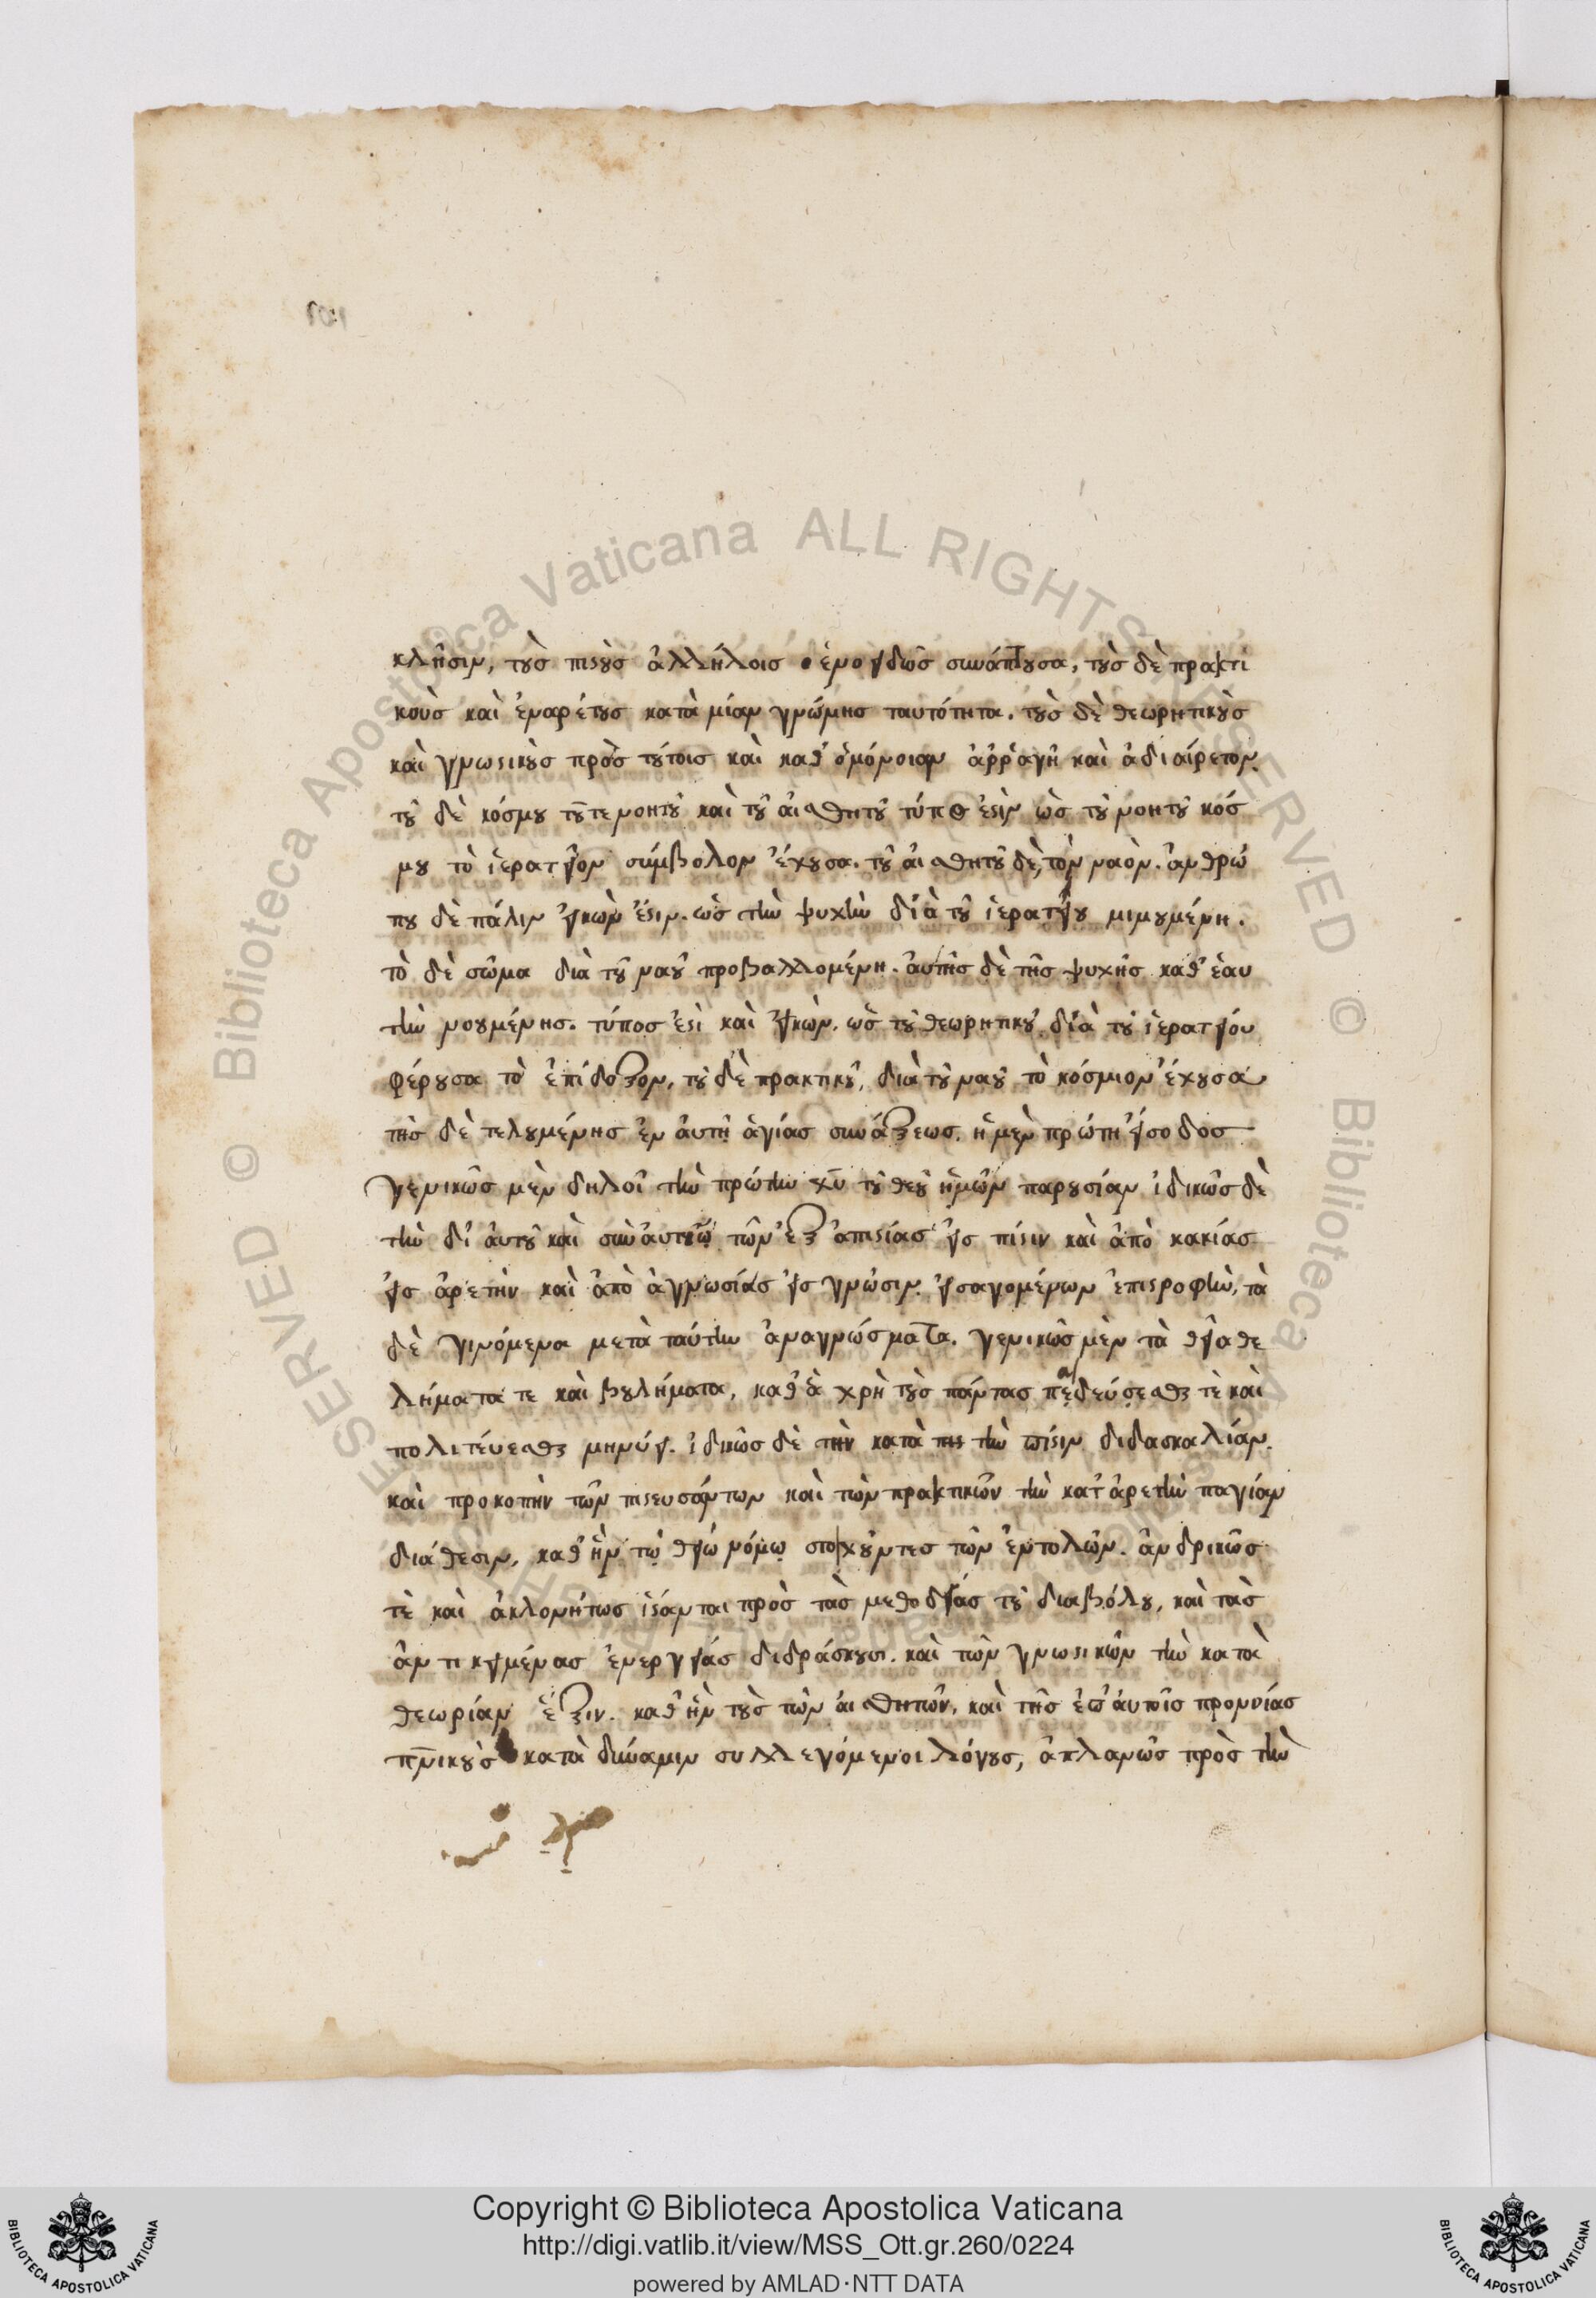 κλῆσιν, τοὺσ πιστοὺσ ἀλλήλοισ ἑνοειδῶσ συνάπτουσα, τοὺσ δὲ πρακτι
κοὺσ καὶ ἐναρέτουσ κατὰ μίαν γνώμησ ταυτότητα. τοὺσ δὲ θεωρητικοὺσ
καὶ γνωστικοὺσ πρὸσ τούτοισ καὶ καθ' ὁμόνοιαν ἀῤῥαγῆ καὶ ἀδιαίρετον.
τοῦ δὲ κόσμου τοῦ τε νοητοῦ καὶ τοῦ αἰσθητοῦ τύποσ ἐστὶν ὡσ τοῦ νοητοῦ κόσ
μου τὸ ἱερατεῖον σύμβολον ἔχουσα. τοῦ αἰσθητοῦ δὲ, τὸν ναὸν. ἀνθρώ
που δὲ πάλιν εἰκὼν ἐστιν. ὡσ τὴν ψυχὴν διὰ τοῦ ἱερατείου μιμουμένη.
τὸ δὲ σῶμα διὰ τοῦ ναοῦ προβαλλομένη. ἀυτῆσ δὲ τῆσ ψυχῆσ καθ' ἑαυ
τὴν νοουμένησ. τύποσ ἐστὶ καὶ εἰκὼν. ὡσ τοῦ θεωρητικοῦ διὰ τοῦ ἱερατείου
φέρουσα τὸ ἐπίδοξον, τοῦ δὲ πρακτικοῦ, διὰ τοῦ ναοῦ τὸ κόσμιον ἔχουσα
τῆσ δὲ τελουμένησ ἐν ἀυτῆ ἁγίασ συνάξεωσ. ἡ μὲν πρώτη εἴσοδοσ
γενικῶσ μὲν δηλοῖ τὴν πρώτην χυ τοῦ θεοῦ ἡμῶν παρουσίαν ἰδικῶσ δὲ
τὴν δι' ἀυτοῦ καὶ σὺν ἀυτῷ τῶν ἐξ ἀπιστίασ εἰσ πίστιν καὶ ἀπὸ κακίασ
εἰσ ἀρετὴν καὶ ἀπὸ ἀγνωσίασ εἰσ γνῶσιν. εἰσαγομένων ἐπιστροφὴν, τὰ
δὲ γινόμενα μετὰ ταύτην ἀναγνώσματα. γενικῶσ μὲν τὰ θεῖα θε
λήματα τε καὶ βουλήματα, καθ' ἃ χρὴ τοὺσ πάντασ παιδεύεσθαι τὲ καὶ
πολιτέυεσθαι μηνύει. ἰδικῶσ δὲ τὴν κατὰ τὴν πίστιν διδασκαλίαν.
καὶ προκοπὴν τῶν πιστευσάντων καὶ τῶν πρακτικῶν τὴν κατ' ἀρετὴν παγίαν
διάθεσιν, καθ' ἣν τῷ θείῳ νόμῳ στοιχοῦντεσ τῶν ἐντολῶν. ἀνδρικῶσ
τὲ καὶ ἀκλονήτωσ ἵστανται πρὸσ τὰσ μεθοδείασ τοῦ διαβόλου, καὶ τὰσ
ἀντικειμένασ ἐνεργείασ διδράσκουσι. καὶ τῶν γνωστικῶν τὴν κατὰ
θεωρίαν ἕξιν. καθ' ἣν τοὺσ τῶν αἰσθητῶν, καὶ τῆσ ἐπ' ἀυτοῖσ προνοίασ
πνικοὺσ κατὰ δύναμιν συλλεγόμενοι λόγουσ, ἀπλανῶσ πρὸσ τὴν
Copyright © Biblioteca Apostolica Vaticana
http://digi.vatlib.it/view/MSS_Ott.gr.260/0224
powered by AMLAD·NTT DATA